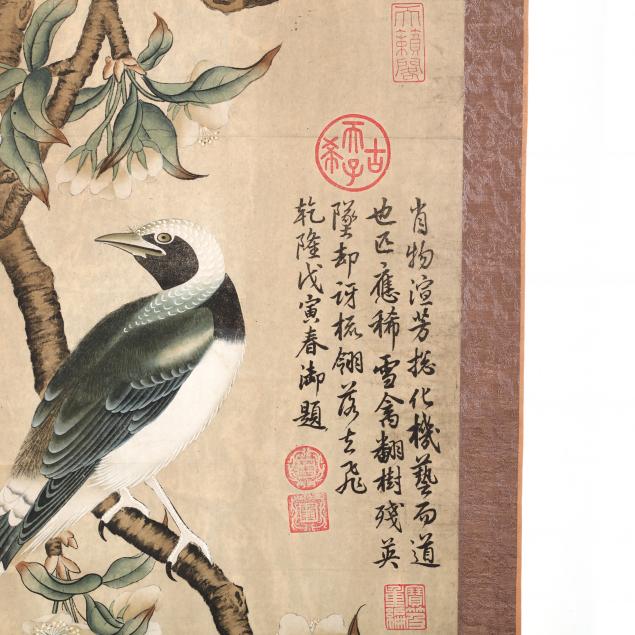 天籟閣
古希天子
肖物渲芳捴化機藝而道
也匹應稀雪禽翻樹殘英
墜却訝梳翎落去飛
乾隆戊寅春御題